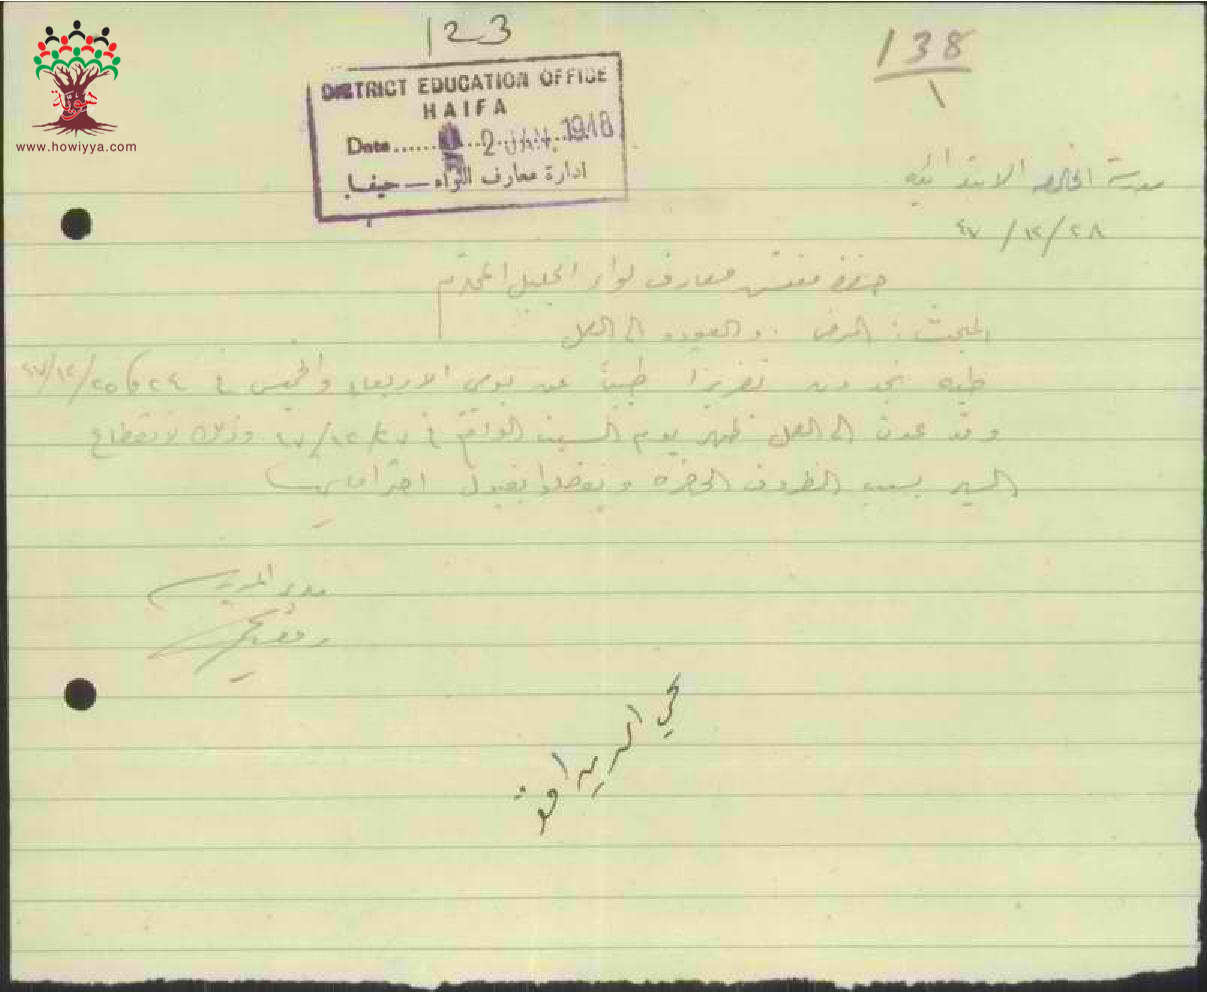 123
138
١
هوية
www.howiyya.com
DISTRICT EDUCATION OFFICE
HAIFA
Date...... 2 JAN. 1948
ادارة معارف اللواء — حيفا
مدرسة الخالصه الابتدائيه
٤٧ / ١٢ / ٢٨
حضرة مفتش معارف لواء الجليل المحترم
المبحث : المرض . والعوده الى العمل
طيه تجدون تقريرا طبيا عن يومي الاربعاء والخميس في ٢٤ و ٢٥/١٢/٤٧
وقد عدت الى العمل ظهر يوم السبت الواقع في ٢٧/١٢/٤٧ وذلك لانقطاع
السير بسبب الظروف الحاضره وتفضلوا بقبول احترامي
مدير المدرسه